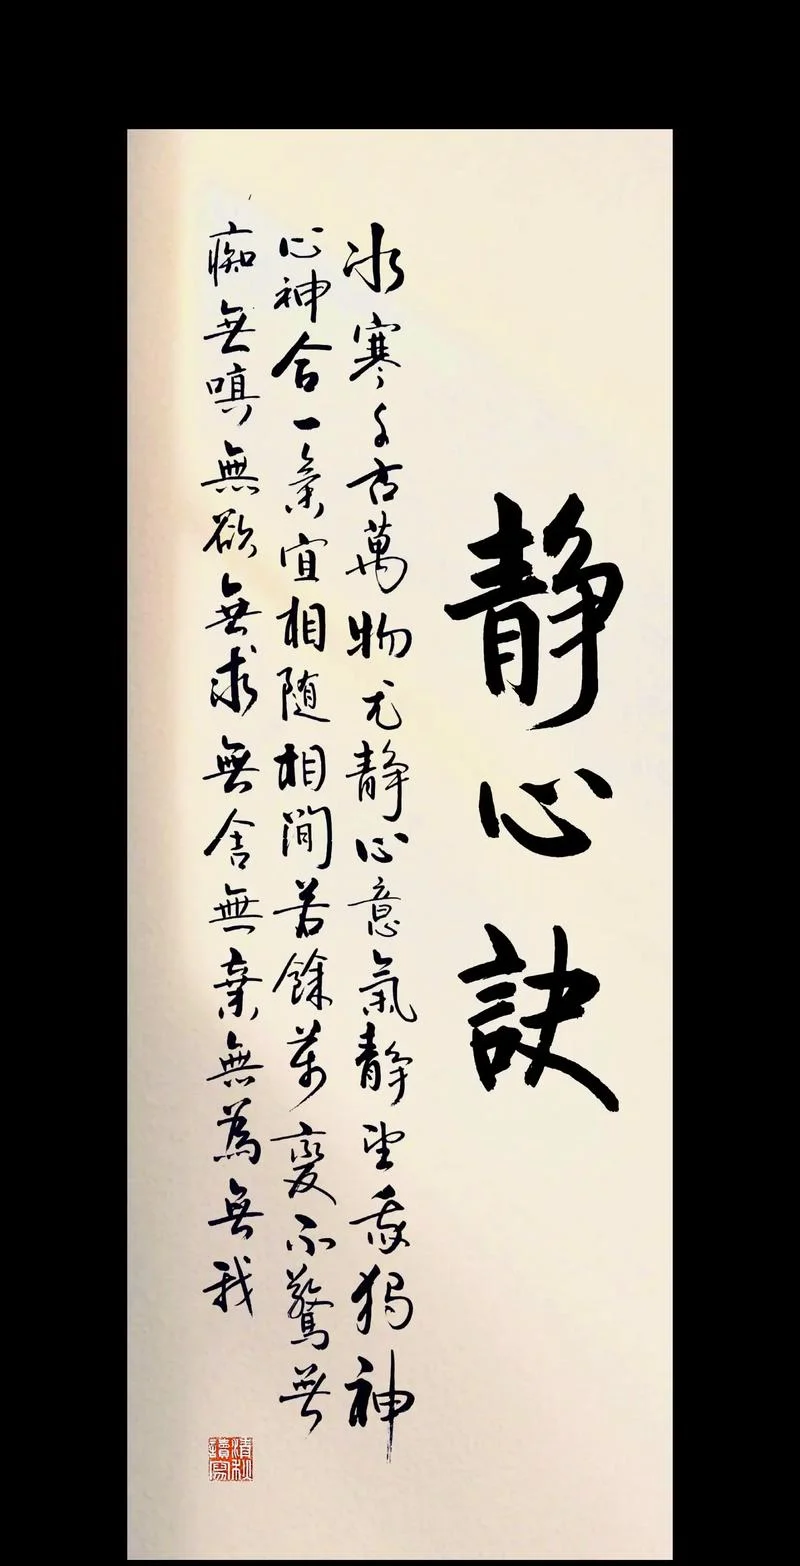 静心訣
冰寒千古萬物尤静心意氣静望我獨神
心神合一氣宜相随相間若餘萬變不驚無
痴無嗔無欲無求無舍無棄無為無我